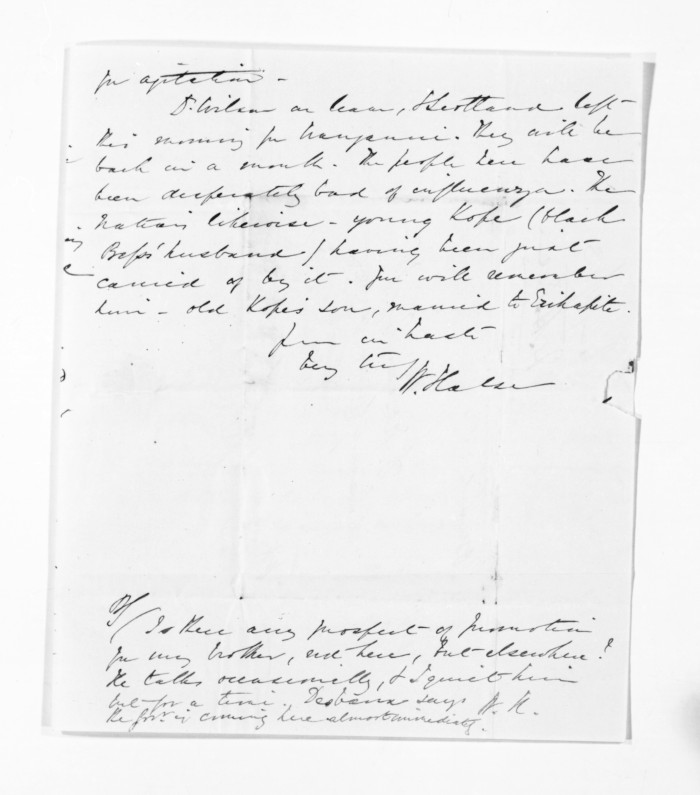 for agitation -
Dr. Wilson on leave, & Scotland left
this morning for Wanganui. They will be
back in a month. The people here have
been desperately bad of influenza. The
Natives likewise - young Kope (black
Bess' husband) having been just
carried of by it. You will remember
him - old Kope's son, married to Erihapite.
Yours in haste
Very truly
W. Halse
P/ Is there any prospect of promotion
for my brother, not here, but elsewhere?
He talks occasionally, & I quiet him
but for a time. says W. H.
the Govr. is coming here almost immediately.